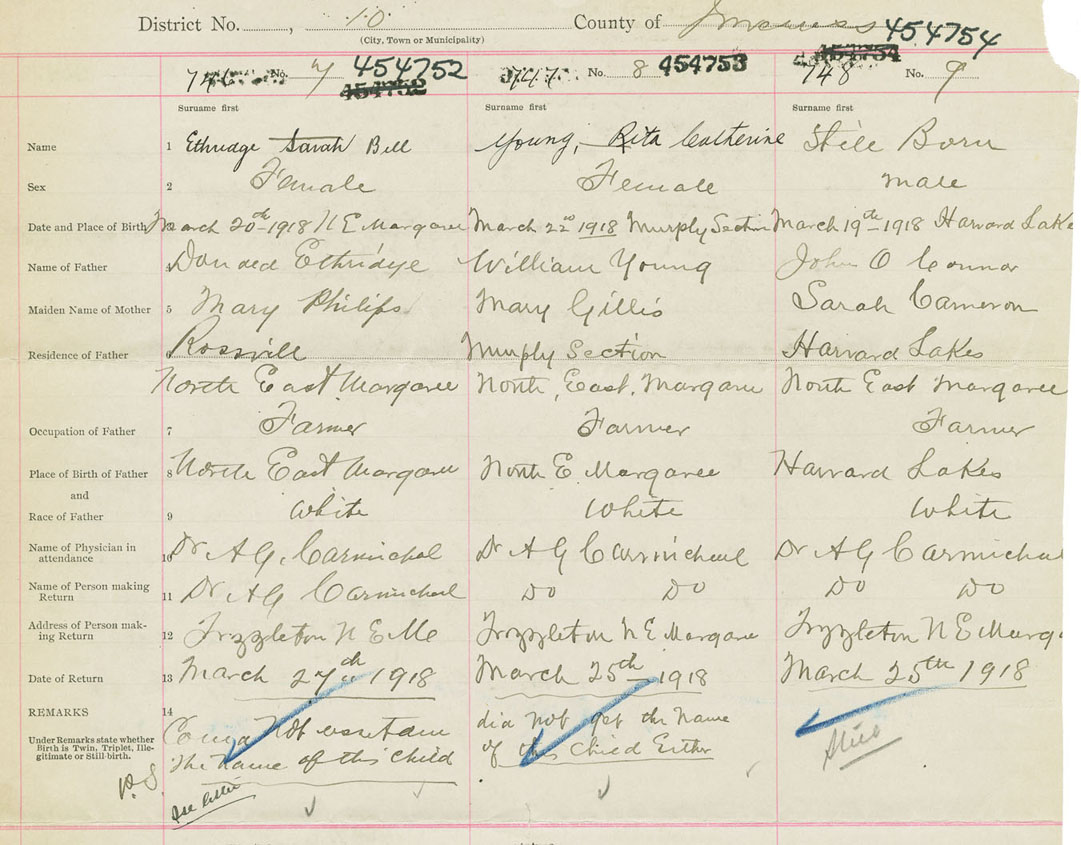 District No. 10 County of Inverness 454754
(City, Town or Municipality)
746 No. 7 454752 747 No. 8 454753 748 No. 9
454752 454754
Surname first Surname first Surname first
Name 1 Ethridge Sarah Bell Young, Rita Catherine Still Born
Sex 2 Female Female male
Date and Place of Birth 3 March 20th 1918 N E Margaree March 22nd 1918 Murply Section March 19th 1918 Harvard Lake
Name of Father 4 Donald Ethridge William Young John O Connor
Maiden Name of Mother 5 Mary Philips Mary Gillis Sarah Cameron
Residence of Father 6 Rossvill Murply Section Harvard Lakes
North East Margaree North, East, Margaree North East Margaree
Occupation of Father 7 Farmer Farmer Farmer
Place of Birth of Father 8 North East Margaree North E Margaree Harvard Lakes
and
Race of Father 9 White White White
Name of Physician in
attendance 10 Dr A G Carmichael Dr A G Carmichael Dr A G Carmichal
Name of Person making
Return 11 Dr A G Carmichael Do Do Do Do
Address of Person mak-
ing Return 12 Frizzleton N E Ma Frizzleton N E Margaree Frizzleton N E Marg
Date of Return 13 March 27th 1918 March 25th 1918 March 25th 1918
REMARKS 14
Under Remarks state whether
Birth is Twin, Triplet, Ille-
gitimate or Still-birth.
Could Not assertain
the name of this child
did not get the name
of this child Either
Still
P.S.
See letter